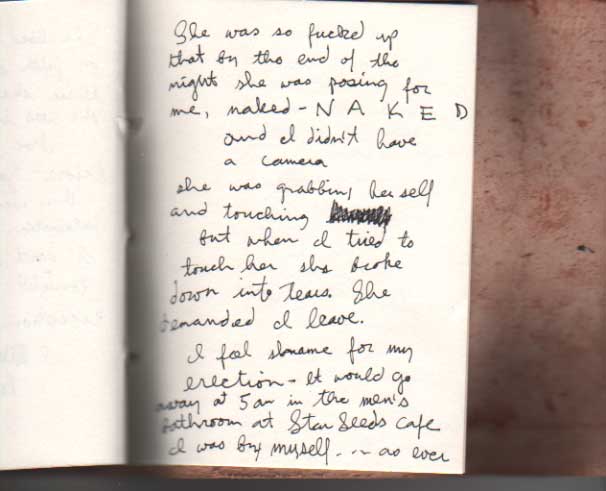 She was so fucked up
that by the end of the
night she was posing for
me, naked - N A K E D
and I didn't have
a camera
she was grabbing herself
and touching
but when I tried to
touch her she broke
down into tears. She
demanded I leave.
I feel shname for my
erection - It would go
away at 5 am in the men's
bathroom at Star Seeds cafe
I was by myself... as ever